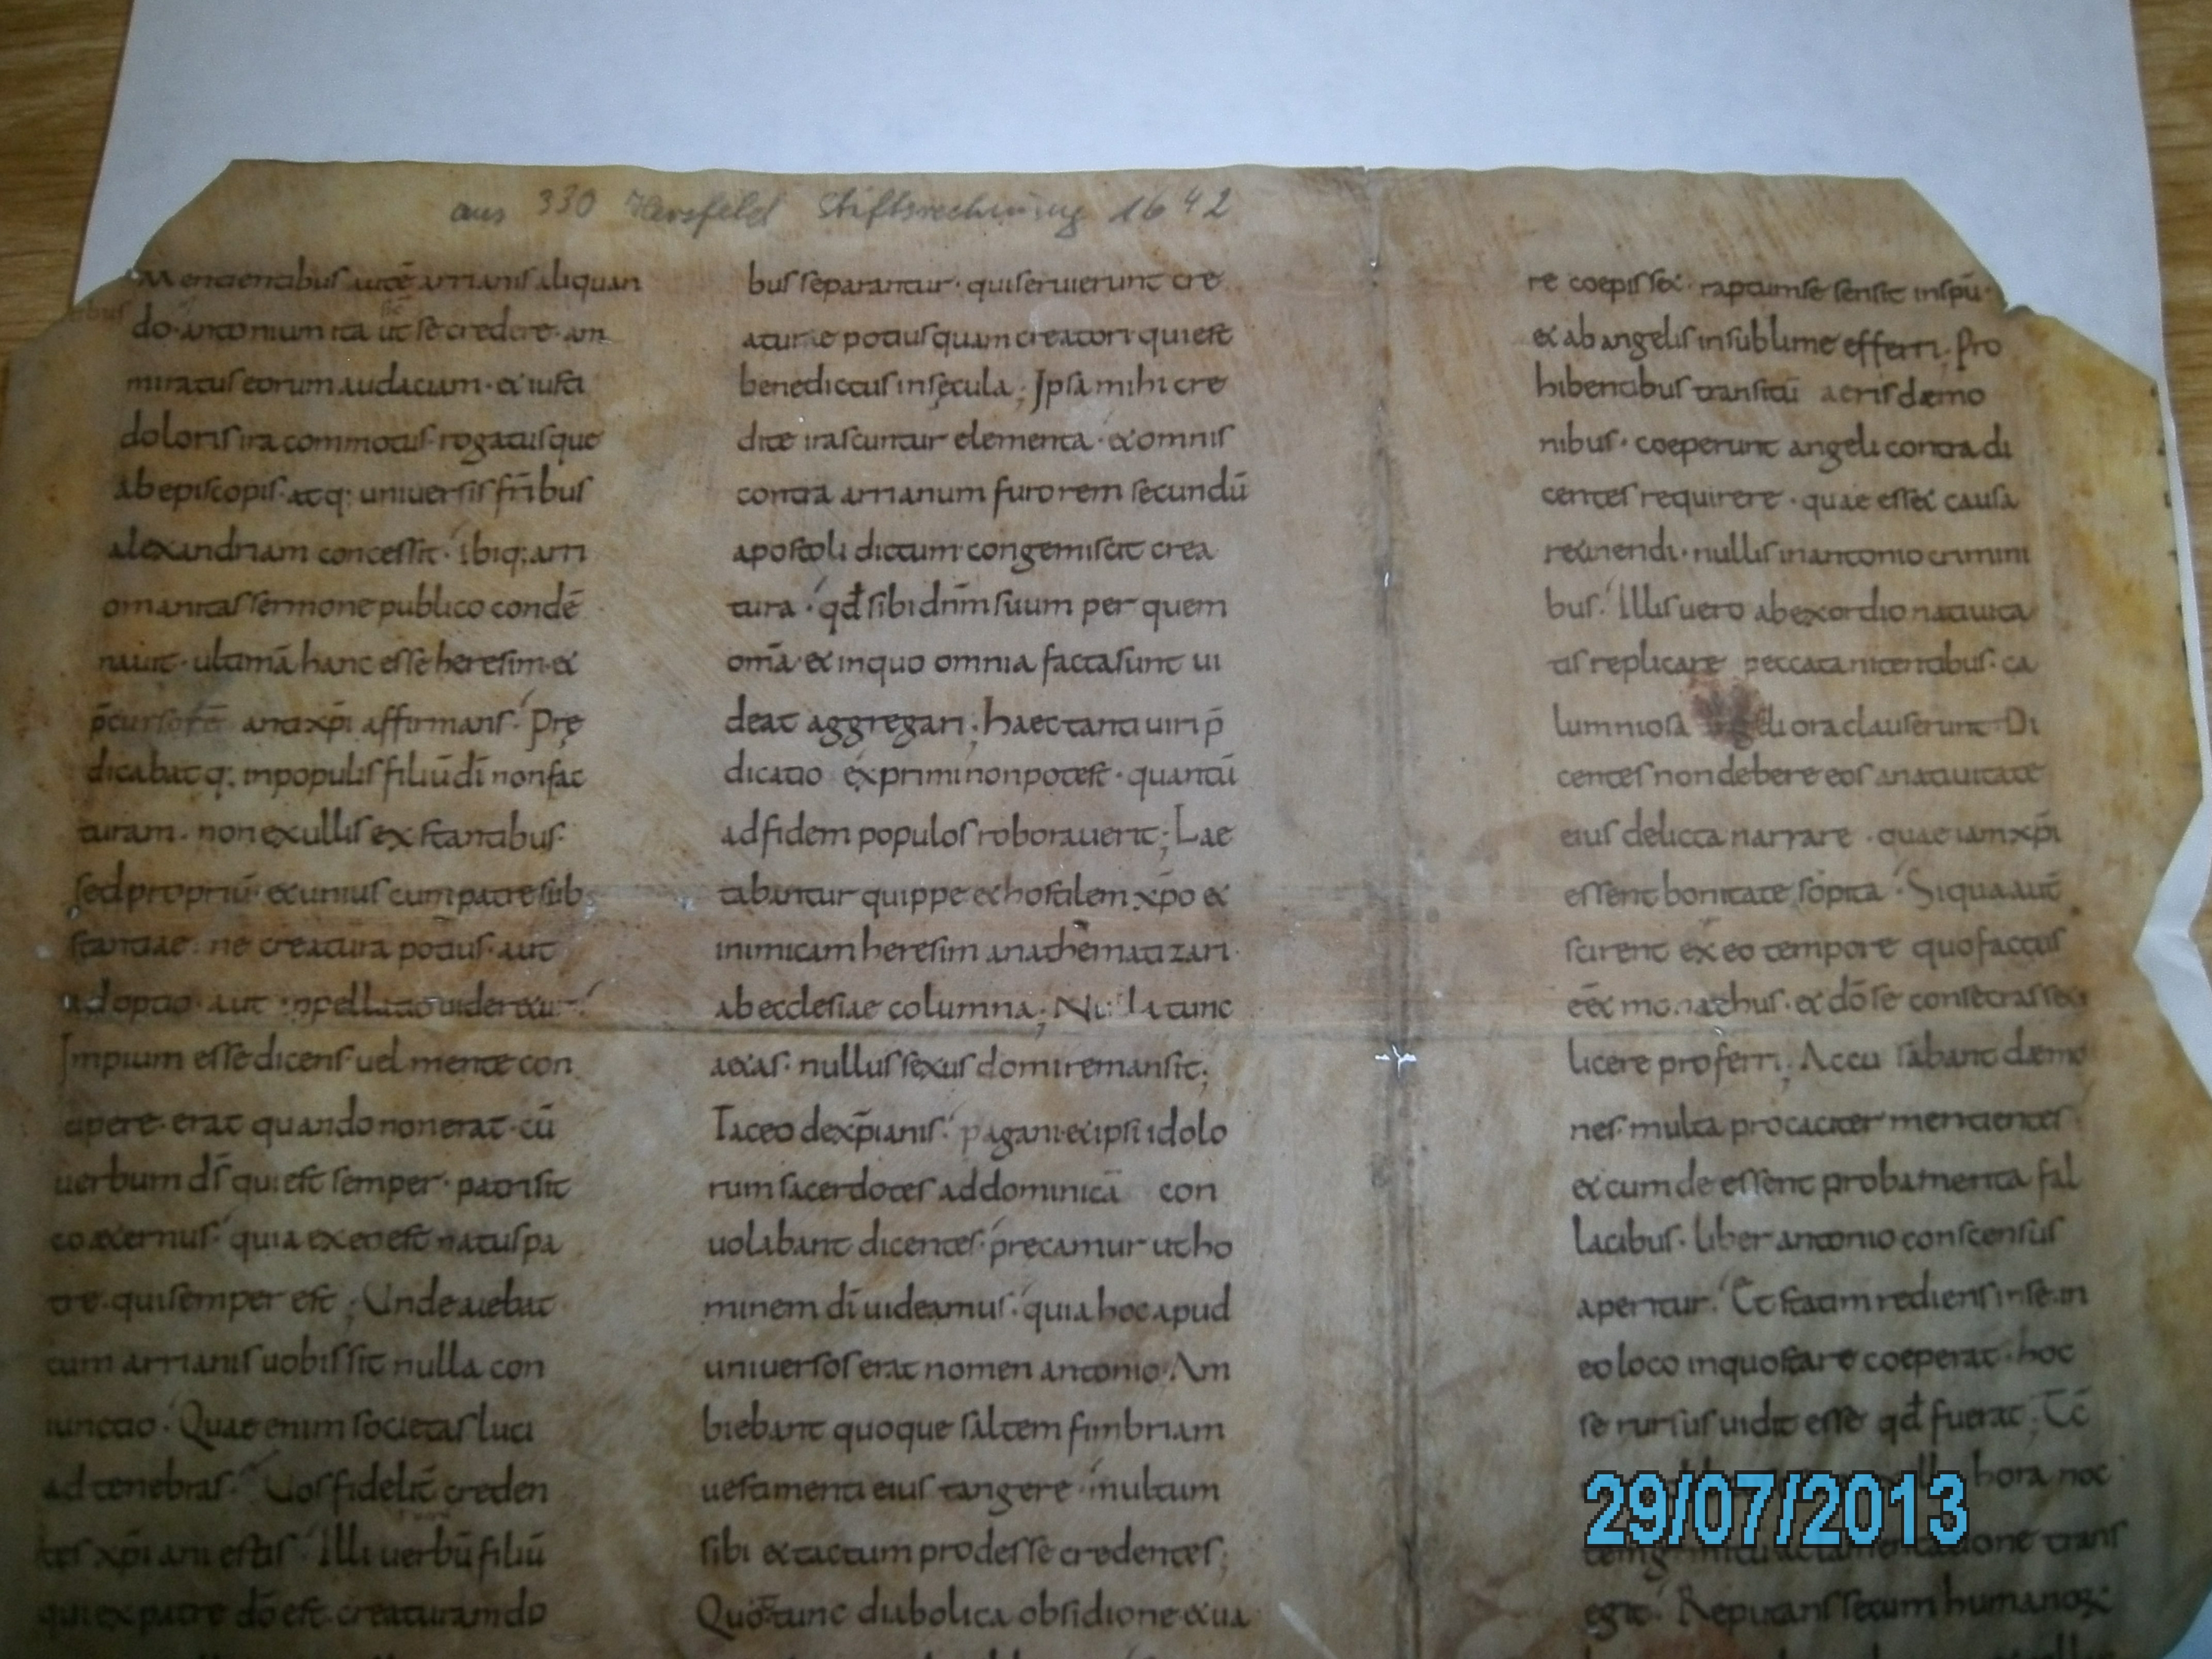 aus 330 Hersfeld Stiftsrechnung 1642
Mentientibus autē arrianis aliquan
do antonium ita ut sic se credere am
miratus eorum audaciam · et iusti
doloris ira commotus · rogatusque
ab episcopis atq: uniuersis fr̄ibus
alexandriam concessit · ibiq: arri
omanitas sermone publico condē
nauit · ultimā hanc esse heresim et
p̄cursorē antixp̄i affirmans · Prę
dicabat q: in populis filiū dī non fac
turam · non ex ullis exstantibus ·
sed propriū et unius cum patre sub
stantiae · ne creatura potius aut
adoptio aut appellatio uideretur ·
Impium esse dicens uel mente con
cipere · erat quando non erat · cū
uerbum dī qui est semper · patri sit
coaeternus · quia ex eo est natus pa
tre qui semper est ; Unde aiebat
cum arrianis uobis sit nulla con
iunctio · Quae enim societas luci
ad tenebras · Uos fidelit̄ creden
tes xp̄iani estis · Illi uerbū filiū
qui ex patre dō est creaturam do
bus separantur · qui seruierunt cre
aturae potius quam creatori qui est
benedictus in sęcula ; Ipsa mihi cre
dite irascuntur elementa · et omnis
contra arrianum furorem secundū
apostoli dictum congemiscit crea
tura · qd̄ sibi dn̄m suum per quem
om̄a et in quo omnia facta sunt ui
deat aggregari ; haec tanti uiri p̄
dicatio exprimi non potest · quantū
ad fidem populos roborauerit ; Lae
tabantur quippe et hostilem xp̄o et
inimicam heresim anathematizari ·
ab ecclesiae columna ; Nulla tunc
aetas · nullus sexus domi remansit ;
Taceo de xp̄ianis · pagani et ipsi idolo
rum sacerdotes ad dominicā con
uolabant dicentes · precamur ut ho
minem dī uideamus · quia hoc apud
uniuersos erat nomen antonio · Am
biebant quoque saltem fimbriam
uestimenti eius tangere · multum
sibi et tactum prodesse credentes ;
Quot tunc diabolica obsidione et ua
re coepisset · raptum se sensit in sp̄u ·
et ab angelis in sublime efferri ; Pro
hibentibus transitū aeris dæmo
nibus · coeperunt angeli contradi
centes requirere · quae esset causa
retinendi · nullis in antonio crimini
bus · Illis uero ab exordio natiuita
tis replicare peccata nitentibus · ca
lumniosa angeli ora clauserunt · Di
centes non debere eos a natiuitate
eius delicta narrare · quae iam xp̄i
essent bonitate sopita · Si qua aut̄
scirent ex eo tempore quo factus
eēt monachus · et dō se consecrasset
licere proferri ; Accusabant dæmo
nes multa procaciter mentientes
et cum deessent probamenta fal
lacibus · liber antonio conscensus
aperitur · Et statim rediens in se · in
eo loco in quo stare coeperat · hoc
se rursus uidit esse qd̄ fuerat ; Tc̄
hora noc
trans
egit · Reputans secum humano
29/07/2013